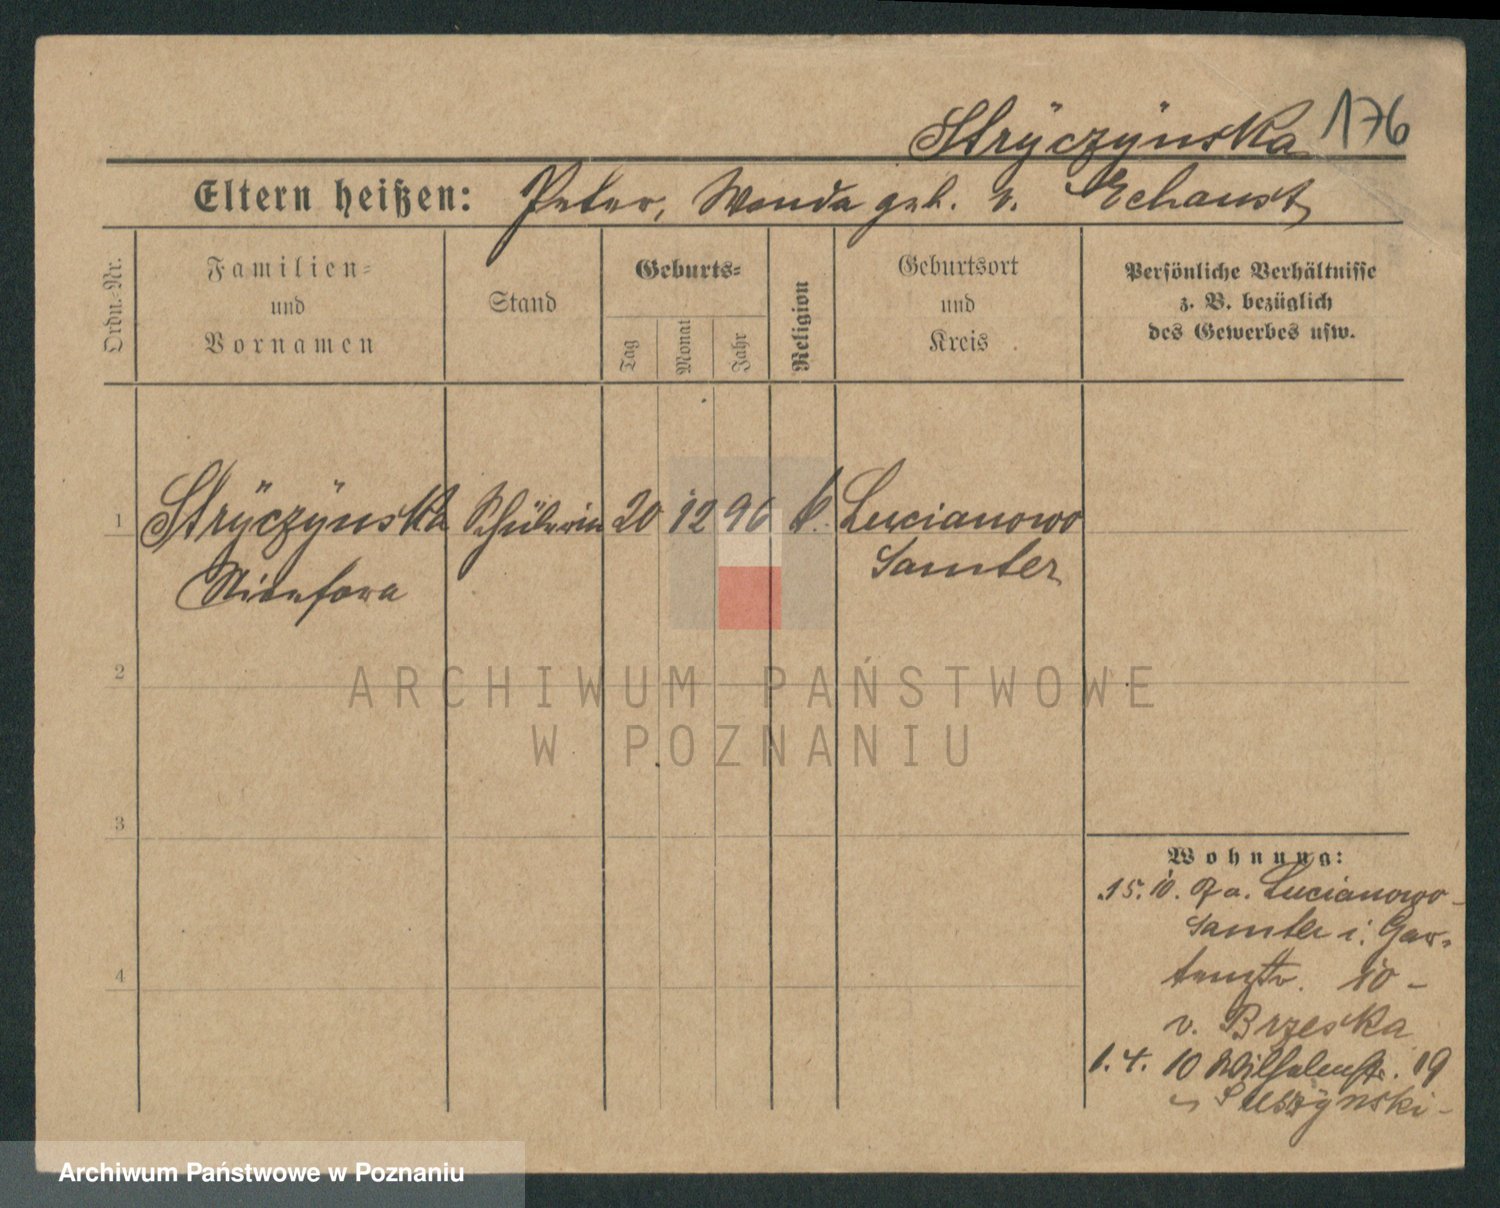 Strÿczÿnska 176
Eltern heißen: Peter, Wanda geb. v. Echaust
Ordn.-Nr.
Familien-
und
Vornamen
Stand
Geburts-
Tag
Monat
Jahr
Religion
Geburtsort
und
Kreis
Persönliche Verhältnisse
z. B. bezüglich
des Gewerbes usw.
1 Strÿczÿnska Schülerin 20 12 96 k. Lucianowo
Samter
2
ARCHIWUM PAŃSTWOWE
W POZNANIU
3
Wohnung:
15. 10. a. Lucianowo-
Samter i. Gar-
tenstr. 10 -
v. Brzeska
4
1. 4. 10 Wilhelmstr. 19
Archiwum Państwowe w Poznaniu